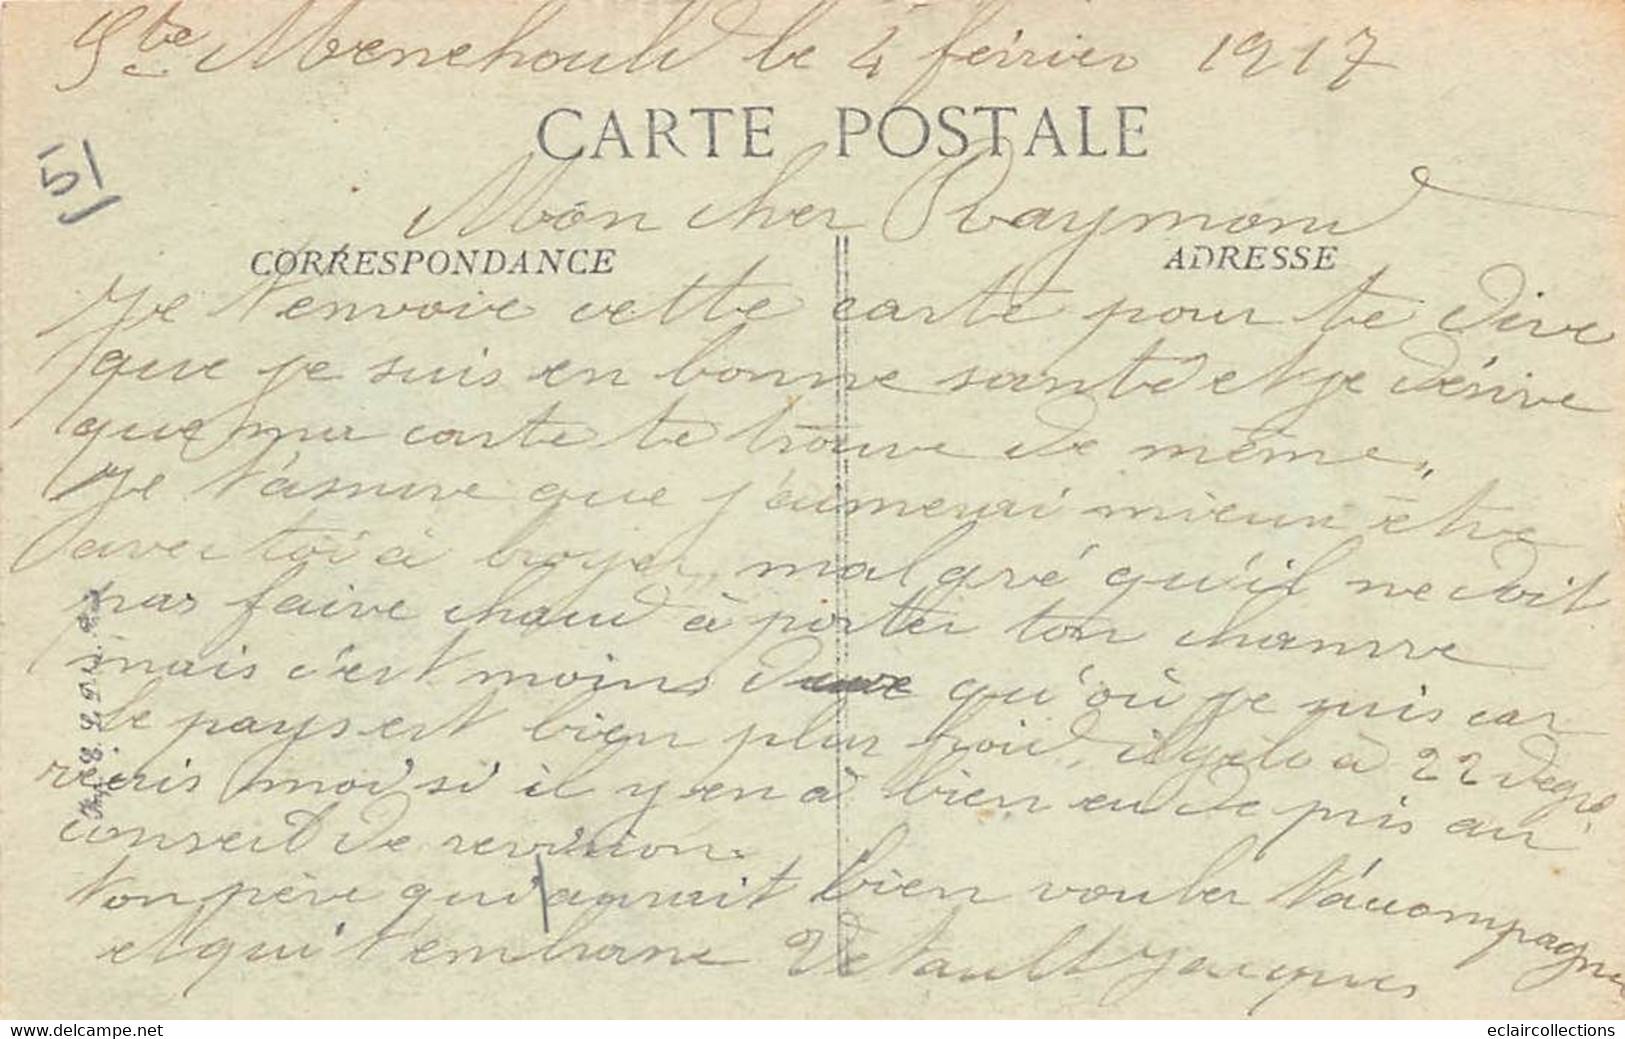 Ste Menehould le 4 février 1917
CARTE POSTALE
51
Mon cher Raymond
CORRESPONDANCE
ADRESSE
Je t'envoie cette carte pour te dire
que je suis en bonne santé et je désire
que ma carte te trouve de même,
Je t'assure que j'aimerai mieux être
avec toi à broyer, malgré qu'il ne doit
pas faire chaud à porter ton chanvre
mais c'est moins dure qu'où je suis car
le pays est bien plus froid, il gèle à 22 degré
moi si il y en à bien eu de pris au
conseil de revision
ton père qui aurait bien voulu t'accompagner
et qui t'embrasse Jacques
eclaircollections
www.delcampe.net